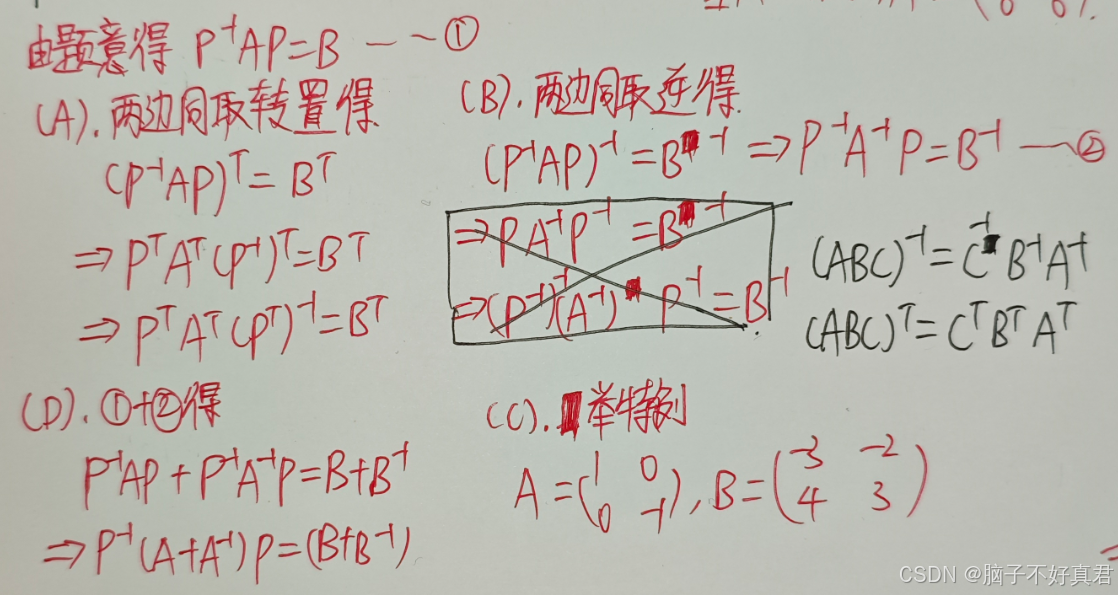 由题意得 P⁻¹AP=B ---①
(A). 两边同取转置得
(P⁻¹AP)ᵀ=Bᵀ
⇒PᵀAᵀ(P⁻¹)ᵀ=Bᵀ
⇒PᵀAᵀ(Pᵀ)⁻¹=Bᵀ
(B). 两边同取逆得
(P⁻¹AP)⁻¹=B⁻¹⇒P⁻¹A⁻¹P=B⁻¹—②
⇒PA⁻¹P⁻¹=B⁻¹
⇒(P⁻¹)(A⁻¹) P⁻¹=B⁻¹
(ABC)⁻¹=C⁻¹B⁻¹A⁻¹
(ABC)ᵀ=CᵀBᵀAᵀ
(D). ①+②得
P⁻¹AP+P⁻¹A⁻¹P=B+B⁻¹
⇒P⁻¹(A+A⁻¹)P=(B+B⁻¹)
(C). 举特例
A=(1 0
0 -1), B=(-3 -2
4 3)
CSDN @脑子不好真君